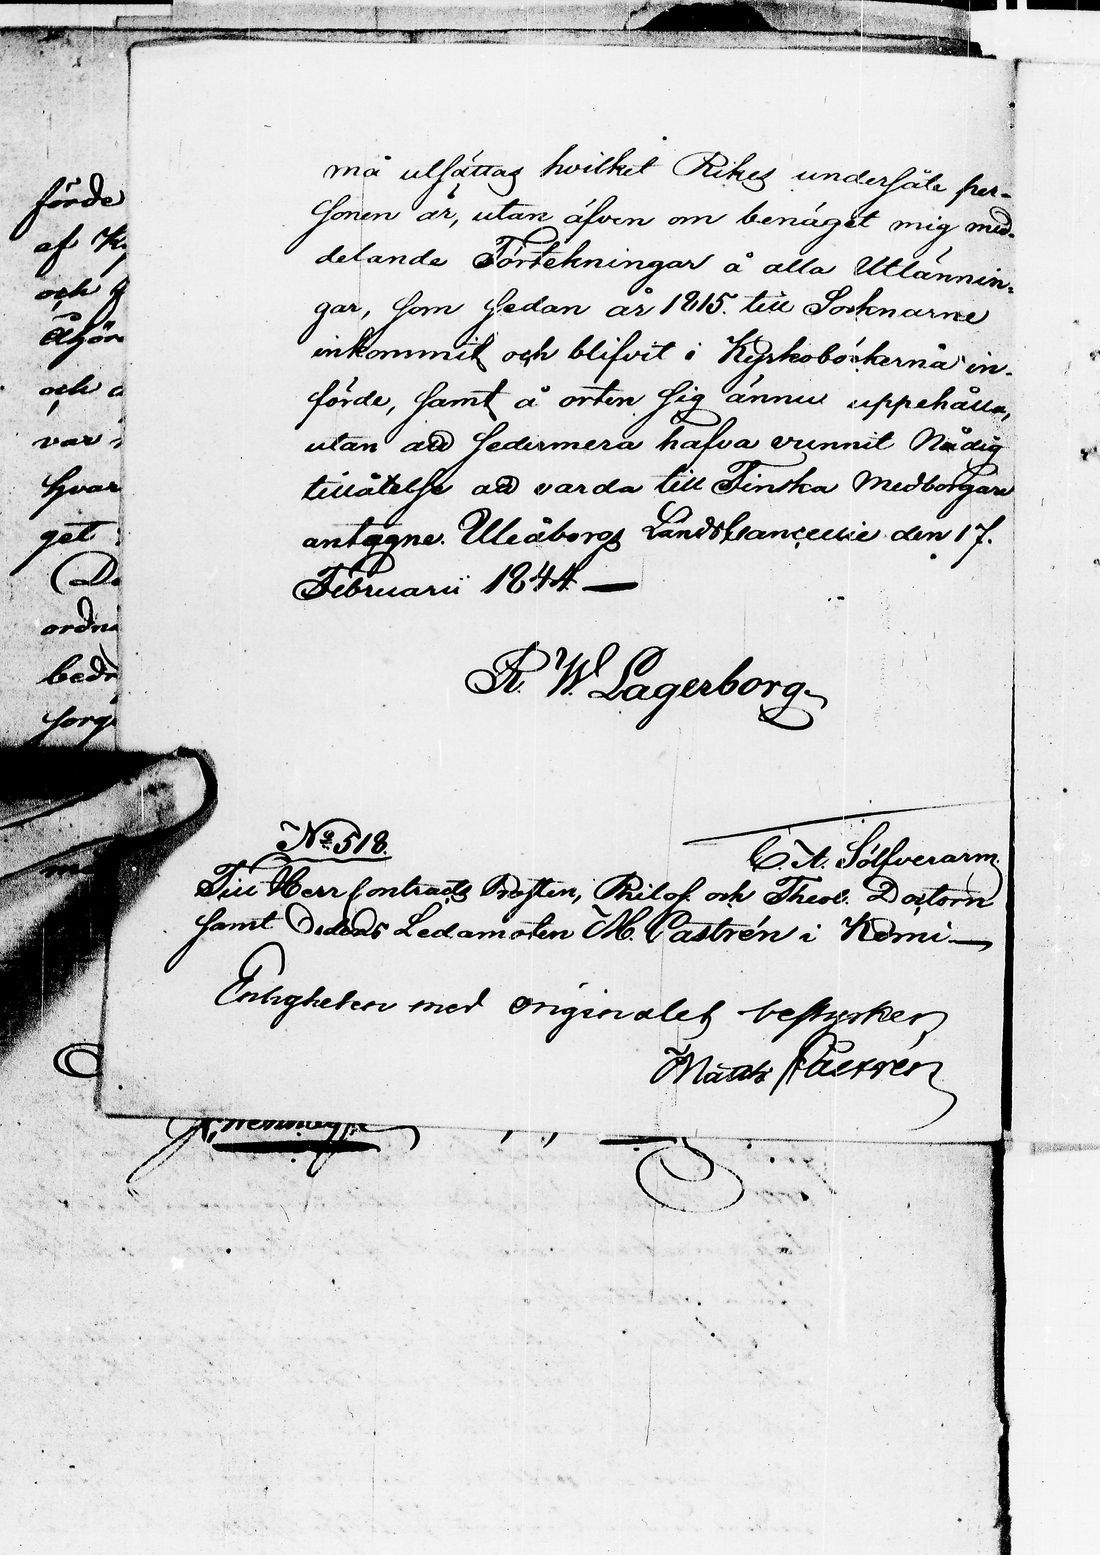 må utsättas hvilket Rikes undersåte per-
sonen är, utan äfven om benäget mig med-
delande Förtekningar å alla Utlännin-
gar, som sedan år 1815. till Socknarne
inkommit och blifvit i Kyrkoböckerna in-
förde, samt å orten sig ännu uppehålla,
utan att sedermera hafva vunnit Nådig
tillåtelse att varda till Finska Medborgare
antagne. Uleåborgs Landskancellie den 17.
Februarii 1844 —
R. W. Lagerborg
No 518.
C. A. Sölfverarm.
Till Herr Contracts Prosten, Philos. och Theol. Doctorn
samt Ordens Ledamoten M. Castrén i Kemi —
Enligheten med originalet bestyrker,
Matth Castrén
förde
af
och
och
var
hvar
get